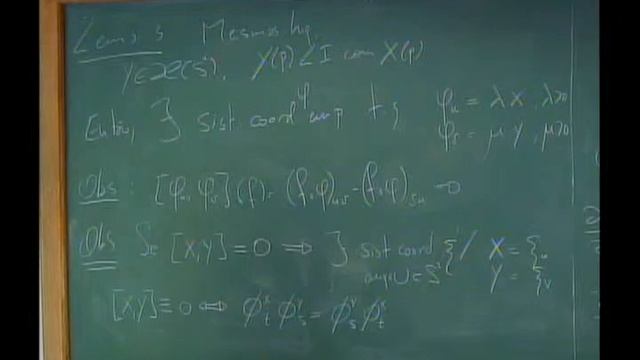 Lema 3 Mesmas hip.
Y∈𝔛(S), Y(p) L I com X(p)
Então, ∃ sist. coord φ em p t.q φ_u = λX, λ>0
φ_v = μY, μ>0
Obs : [φ_u, φ_v](f) = (f∘φ)_{uv} - (f∘φ)_{vu} = 0
Obs Se [X,Y] = 0 ⇒ ∃ sist coord ξ / X = ξ_u
U ⊂ S Y = ξ_v
[X,Y] ≡ 0 ⇔ ϕ_t^X ϕ_s^Y = ϕ_s^Y ϕ_t^X